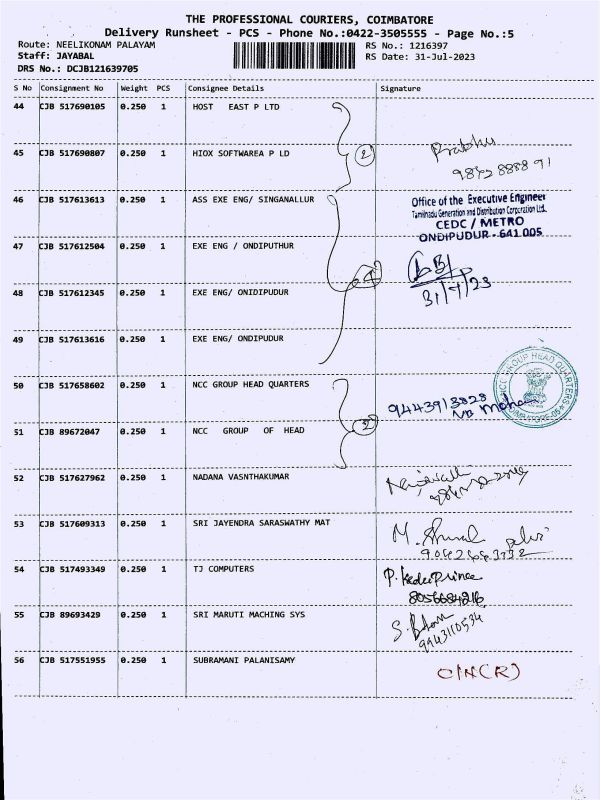 THE PROFESSIONAL COURIERS, COIMBATORE
Delivery Runsheet - PCS - Phone No.:0422-3505555 - Page No.:5
Route: NEELIKONAM PALAYAM RS No.: 1216397
Staff: JAYABAL RS Date: 31-Jul-2023
DRS No.: DCJB121639705
S No Consignment No Weight PCS Consignee Details Signature
44 CJB 517690105 0.250 1 HOST EAST P LTD
45 CJB 517690807 0.250 1 HIOX SOFTWAREA P LD 2 Prabhu
98428888 91
46 CJB 517613613 0.250 1 ASS EXE ENG/ SINGANALLUR Office of the Executive Engineer
Tamilnadu Generation and Distribution Corporation Ltd.
CEDC / METRO
ONDIPUDUR - 641 005
47 CJB 517612504 0.250 1 EXE ENG / ONDIPUTHUR
4
31/7/23
48 CJB 517612345 0.250 1 EXE ENG/ ONIDIPUDUR
49 CJB 517613616 0.250 1 EXE ENG/ ONDIPUDUR
50 CJB 517658602 0.250 1 NCC GROUP HEAD QUARTERS 9443913828
NCC GROUP HEAD QUARTERS
51 CJB 89672047 0.250 1 NCC GROUP OF HEAD 2
52 CJB 517627962 0.250 1 NADANA VASNTHAKUMAR
53 CJB 517609313 0.250 1 SRI JAYENDRA SARASWATHY MAT
54 CJB 517493349 1 0.250 TJ COMPUTERS P. Kedar Prince
8056684216
55 CJB 89693429 0.250 1 SRI MARUTI MACHING SYS
9943110534
56 CJB 517551955 0.250 1 SUBRAMANI PALANISAMY O/N(R)